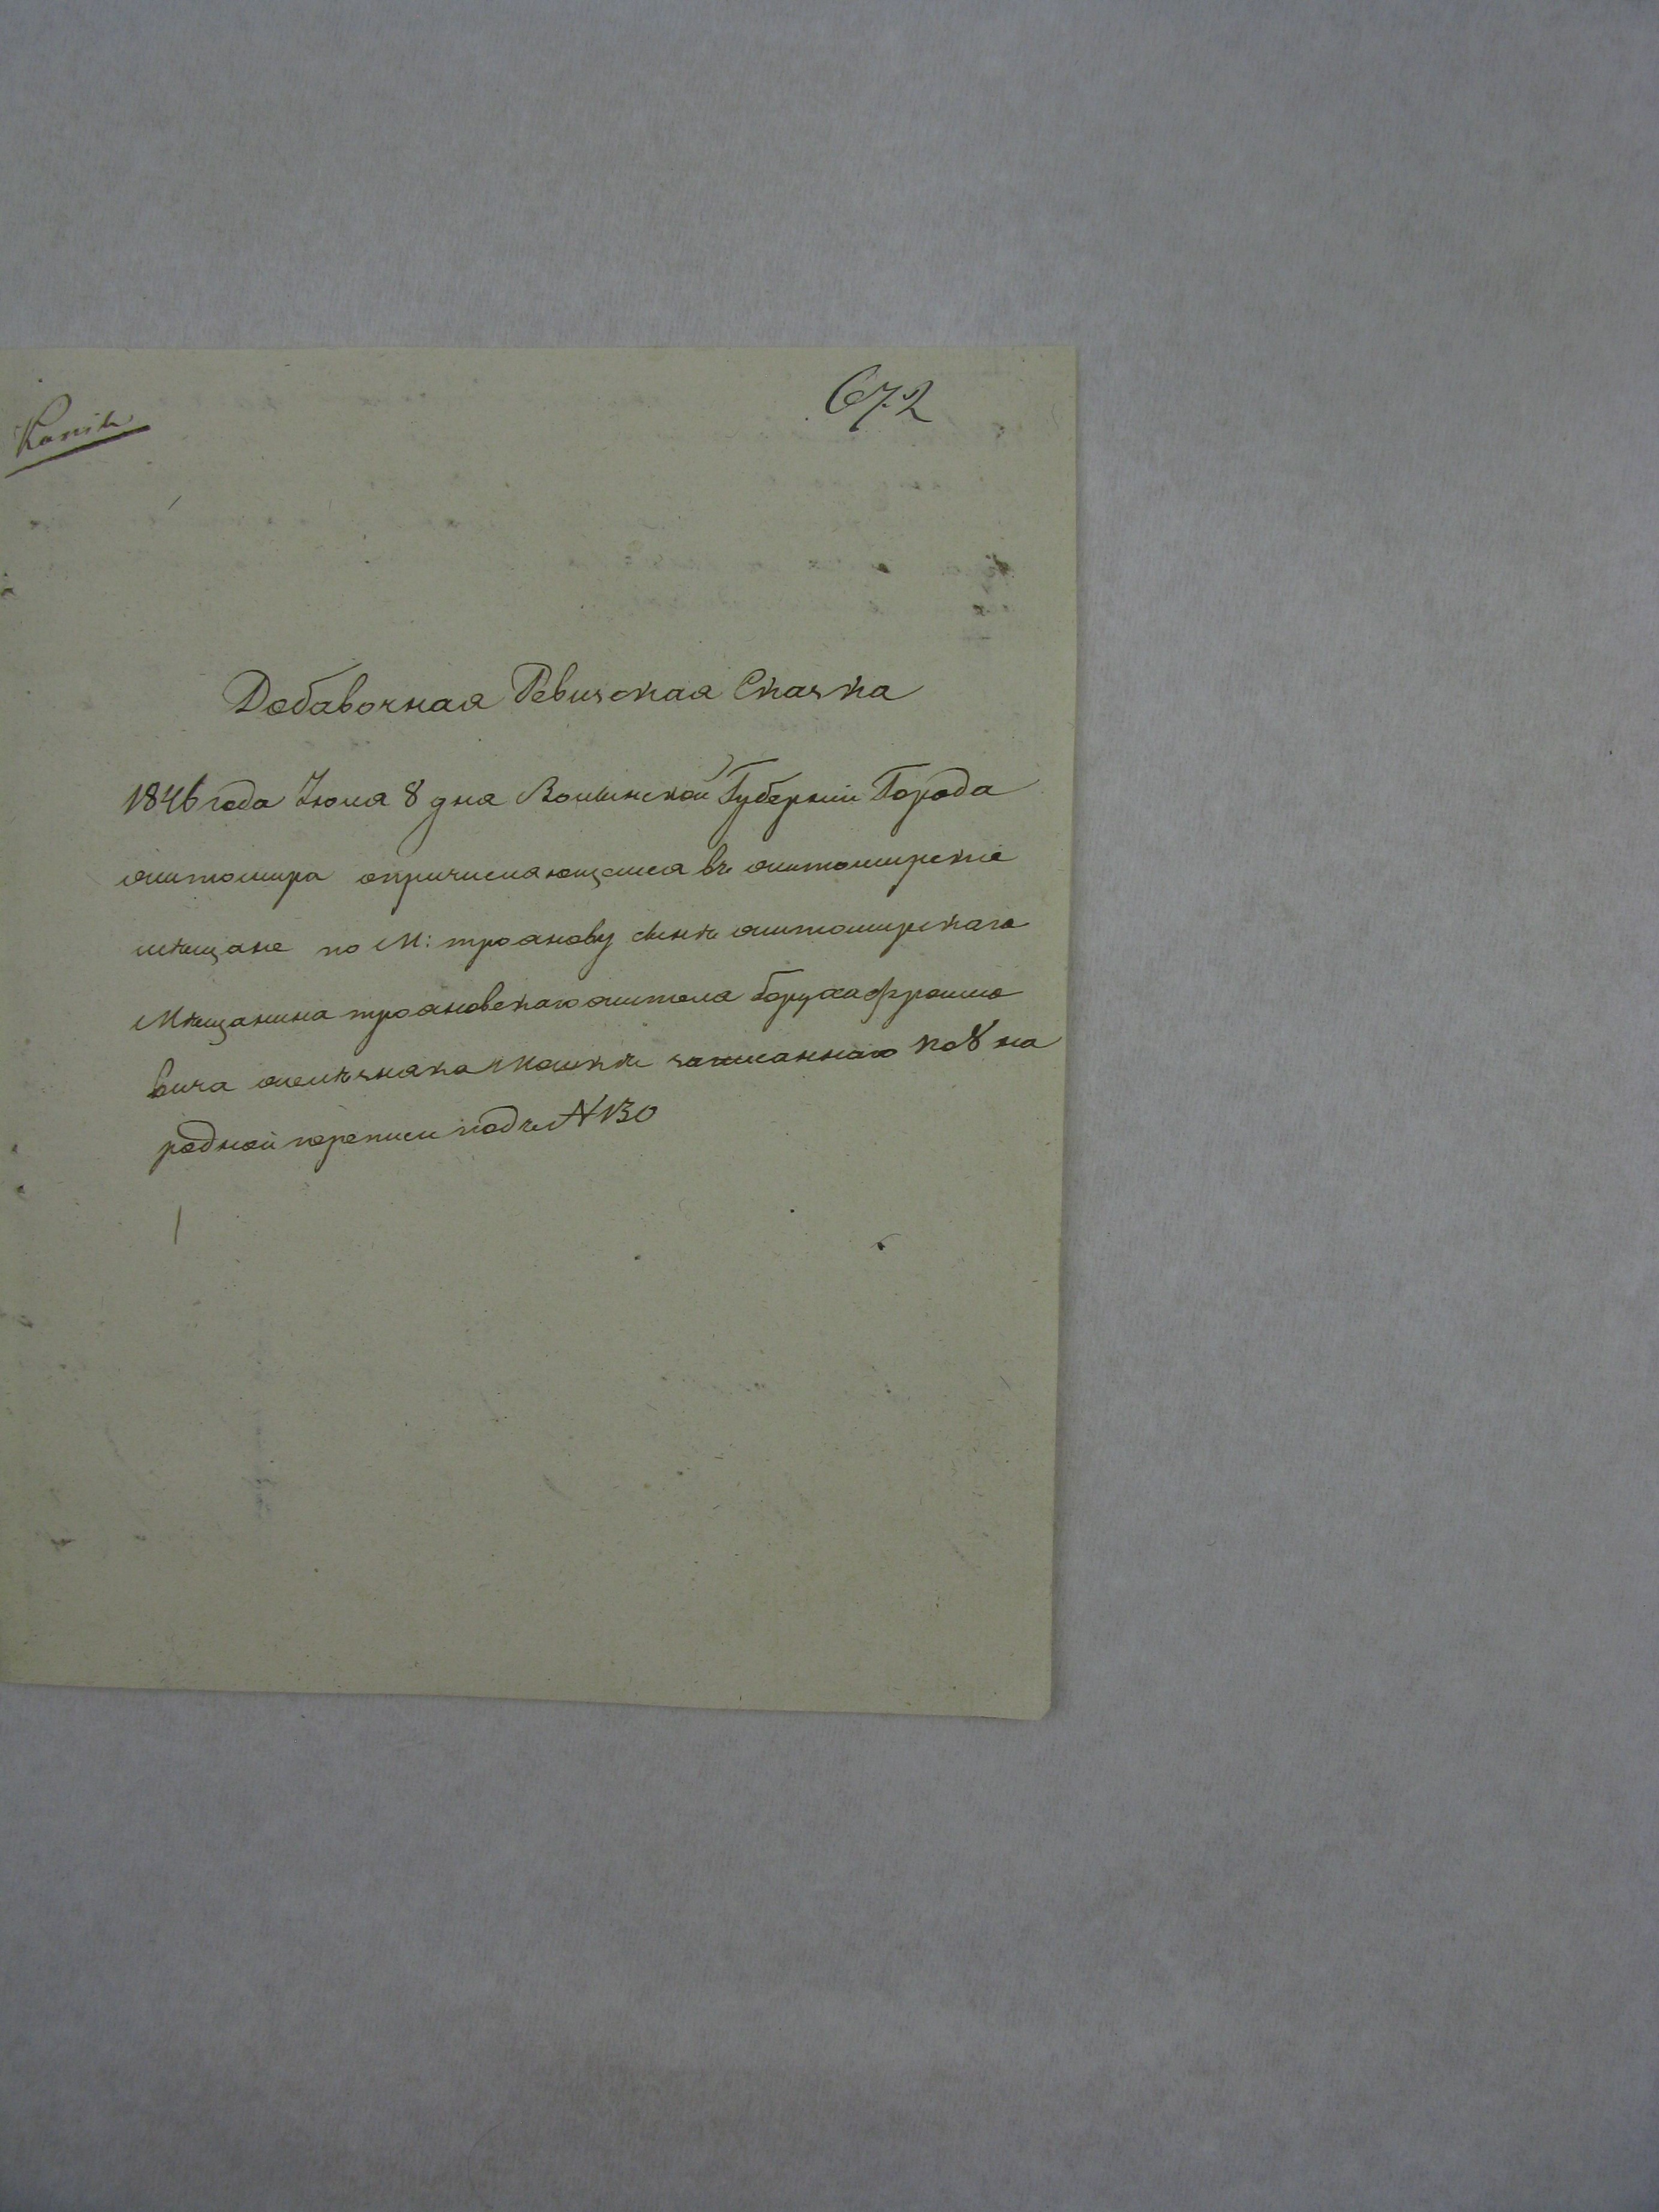 Копія
672
Добавочная Ревизская Сказка
1846 года Июля 8 дня Волынской Губерніи Города
житомира опричисляющемся въ житомирскіе
мѣщане по М: троянову сынѣ житомирскаго
Мѣщанина трояновскаго жителя боруха фроимо
вича записаннаго по 8 на
родной переписи подъ N 130